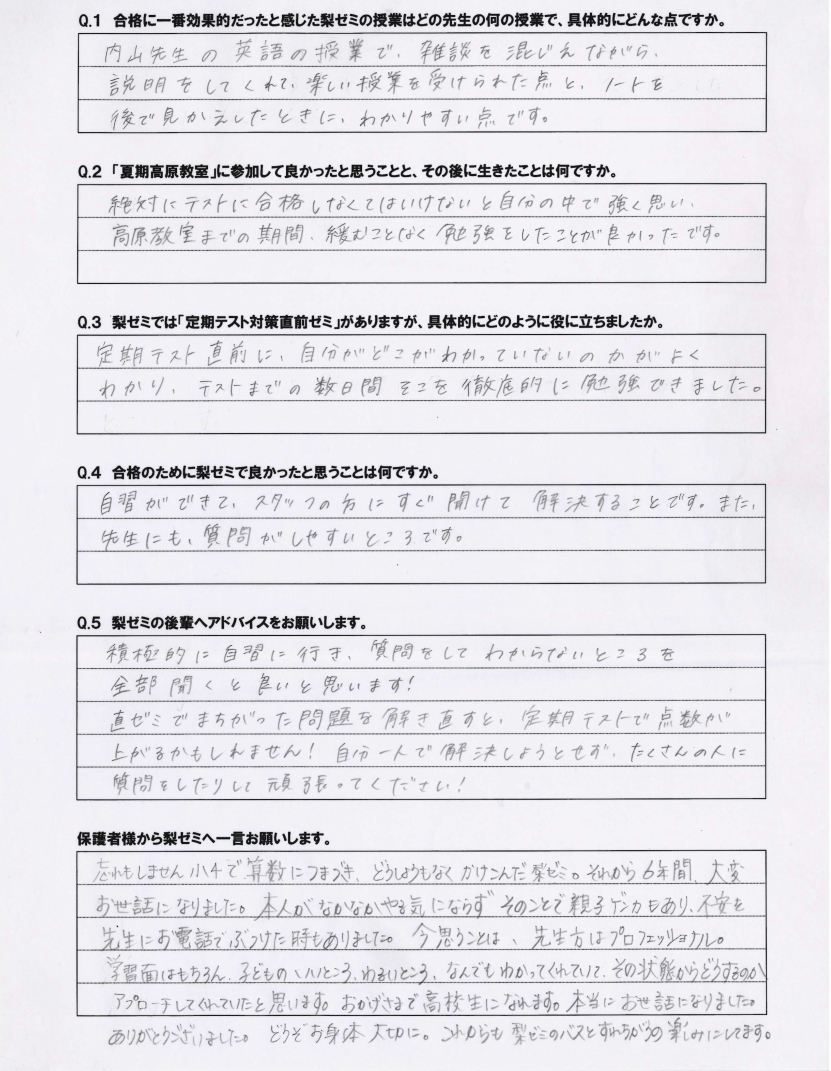 Q.1 合格に一番効果的だったと感じた梨ゼミの授業はどの先生の何の授業で、具体的にどんな点ですか。
内山先生の英語の授業で、雑談を混じえながら、
説明をしてくれて、楽しい授業を受けられた点と、ノートを
後で見かえしたときに、わかりやすい点です。
Q.2 「夏期高原教室」に参加して良かったと思うことと、その後に生きたことは何ですか。
絶対にテストに合格しなくてはいけないと自分の中で強く思い、
高原教室までの期間、緩むことなく勉強をしたことが良かったです。
Q.3 梨ゼミでは「定期テスト対策直前ゼミ」がありますが、具体的にどのように役に立ちましたか。
定期テスト直前に、自分がどこがわかっていないのかがよく
わかり、テストまでの数日間そこを徹底的に勉強できました。
Q.4 合格のために梨ゼミで良かったと思うことは何ですか。
自習ができて、スタッフの方にすぐ聞けて解決することです。また、
先生にも、質問がしやすいところです。
Q.5 梨ゼミの後輩へアドバイスをお願いします。
積極的に自習に行き、質問をしてわからないところを
全部聞くと良いと思います!
直ゼミでまちがった問題を解き直すと、定期テストで点数が
上がるかもしれません!自分一人で解決しようとせず、たくさんの人に
質問をしたりして頑張ってください!
保護者様から梨ゼミへ一言お願いします。
忘れもしません小4で算数につまづき、どうしようもなくかけこんだ梨ゼミ。それから6年間、大変
お世話になりました。本人がなかなかやる気にならずそのことで親子ゲンカもあり、不安を
先生にお電話でぶつけた時もありました。今思うことは、先生方はプロフェッショナル。
学習面はもちろん、子どものいいところ、わるいところ、なんでもわかってくれていて、その状態からどうするのか
アプローチしてくれていたと思います。おかげさまで高校生になれます。本当にお世話になりました。
ありがとうございました。どうぞお身体大切に。これからも梨ゼミのバスとすれちがうの楽しみにしてます。